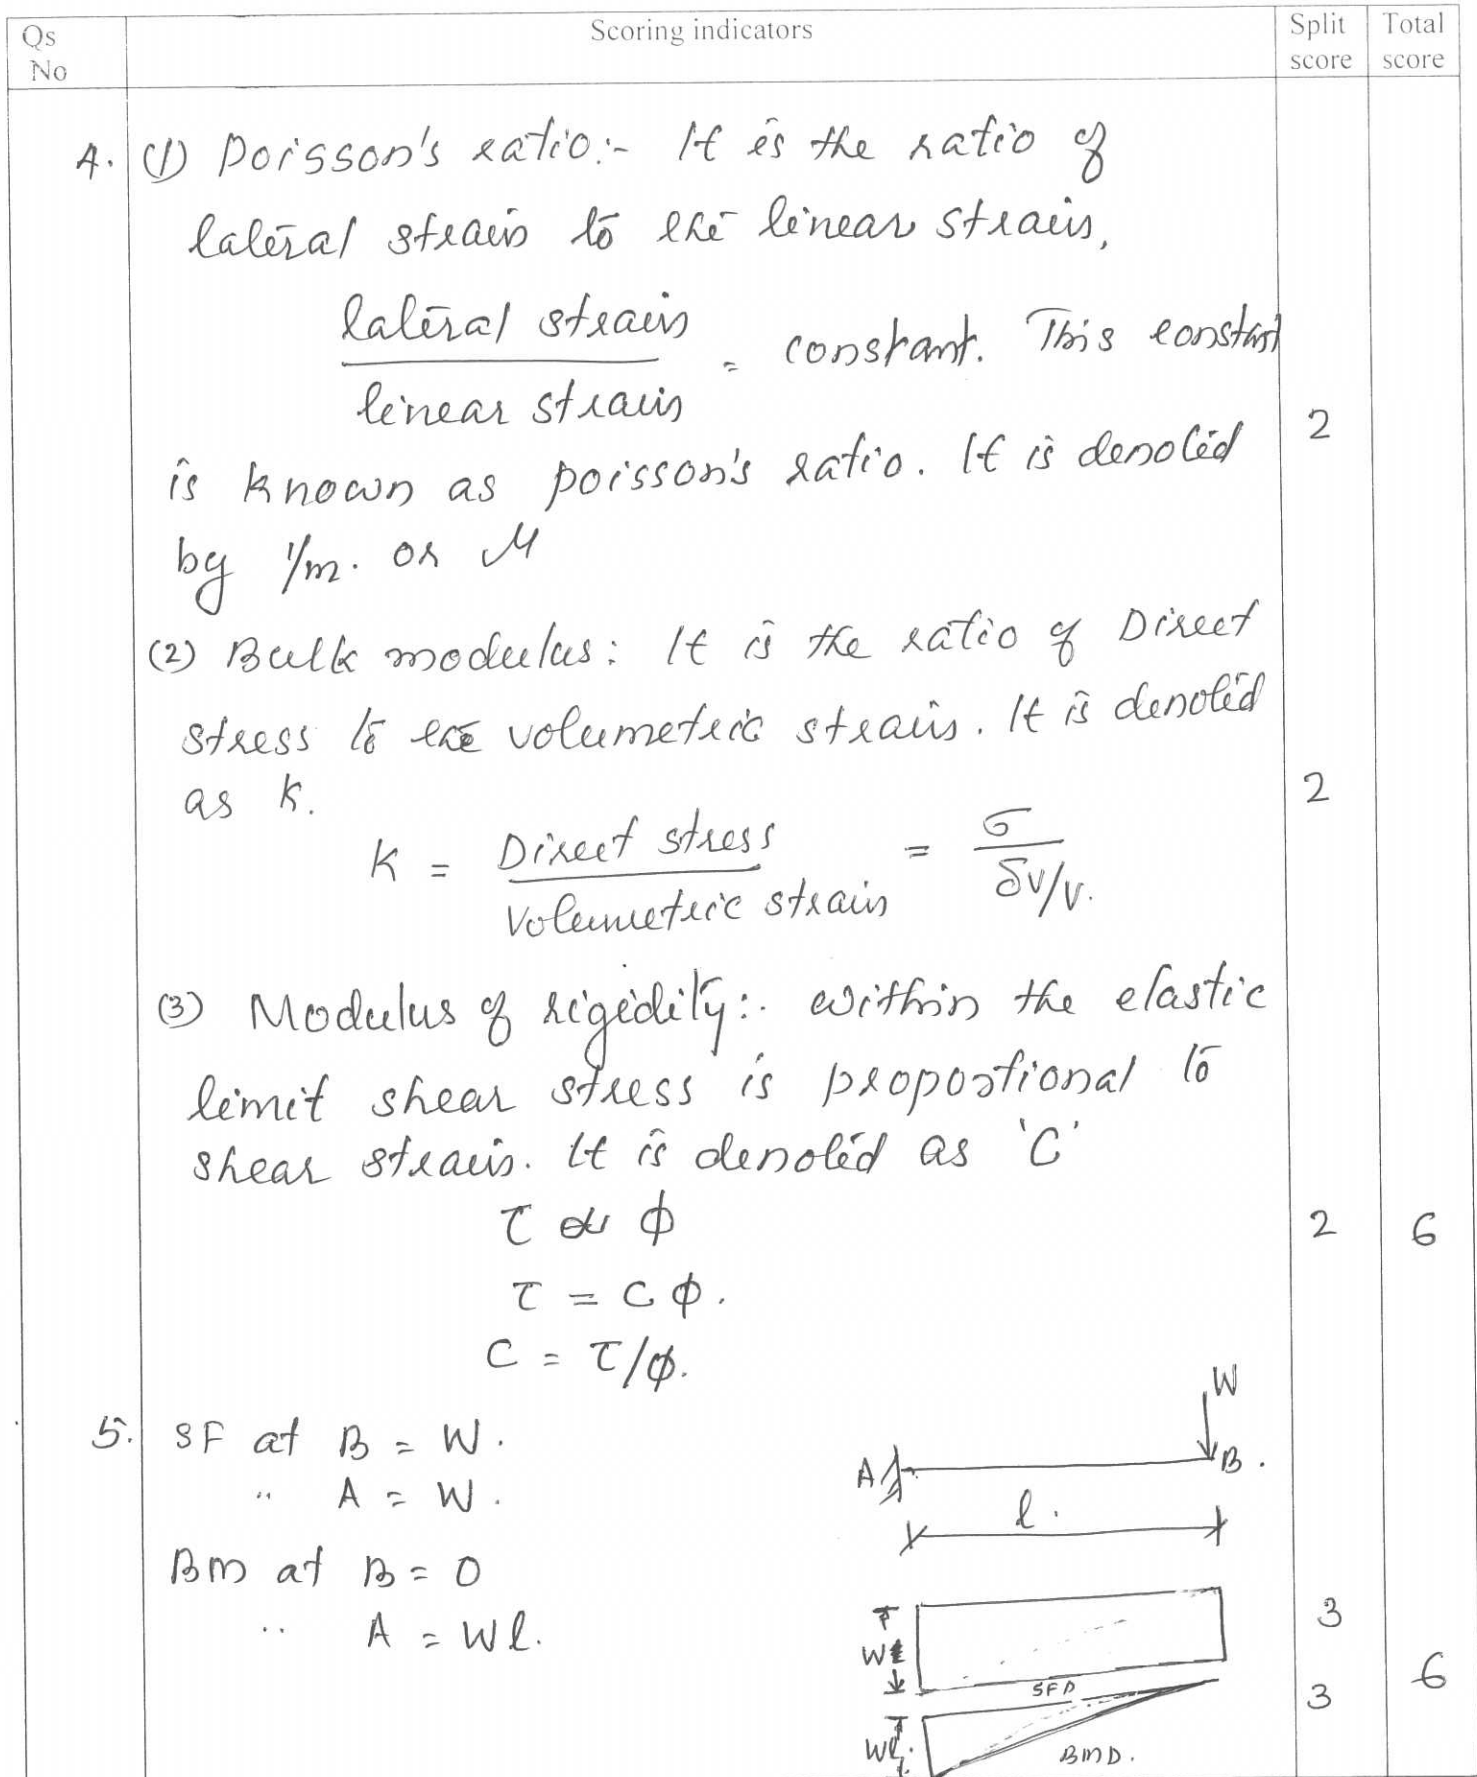 Qs No
Scoring indicators
Split score
Total score
4. (1) Poisson's ratio:- It is the ratio of
lateral strain to the linear strain,
lateral strain
linear strain
= constant. This constant
2
is known as poisson's ratio. It is denoted
by 1/m. or μ
(2) Bulk modulus: It is the ratio of Direct
stress to the volumetric strain. It is denoted
as K.
2
K = Direct stress / Volumetric strain = σ / δv/v.
(3) Modulus of rigidity:. within the elastic
limit shear stress is proportional to
shear strain. It is denoted as 'C'
τ α φ
2
6
τ = C φ.
C = τ/φ.
W
5. SF at B = W.
A
B.
" A = W.
l.
BM at B = 0
" A = Wl.
3
W
SFD
6
3
Wl.
BMD.